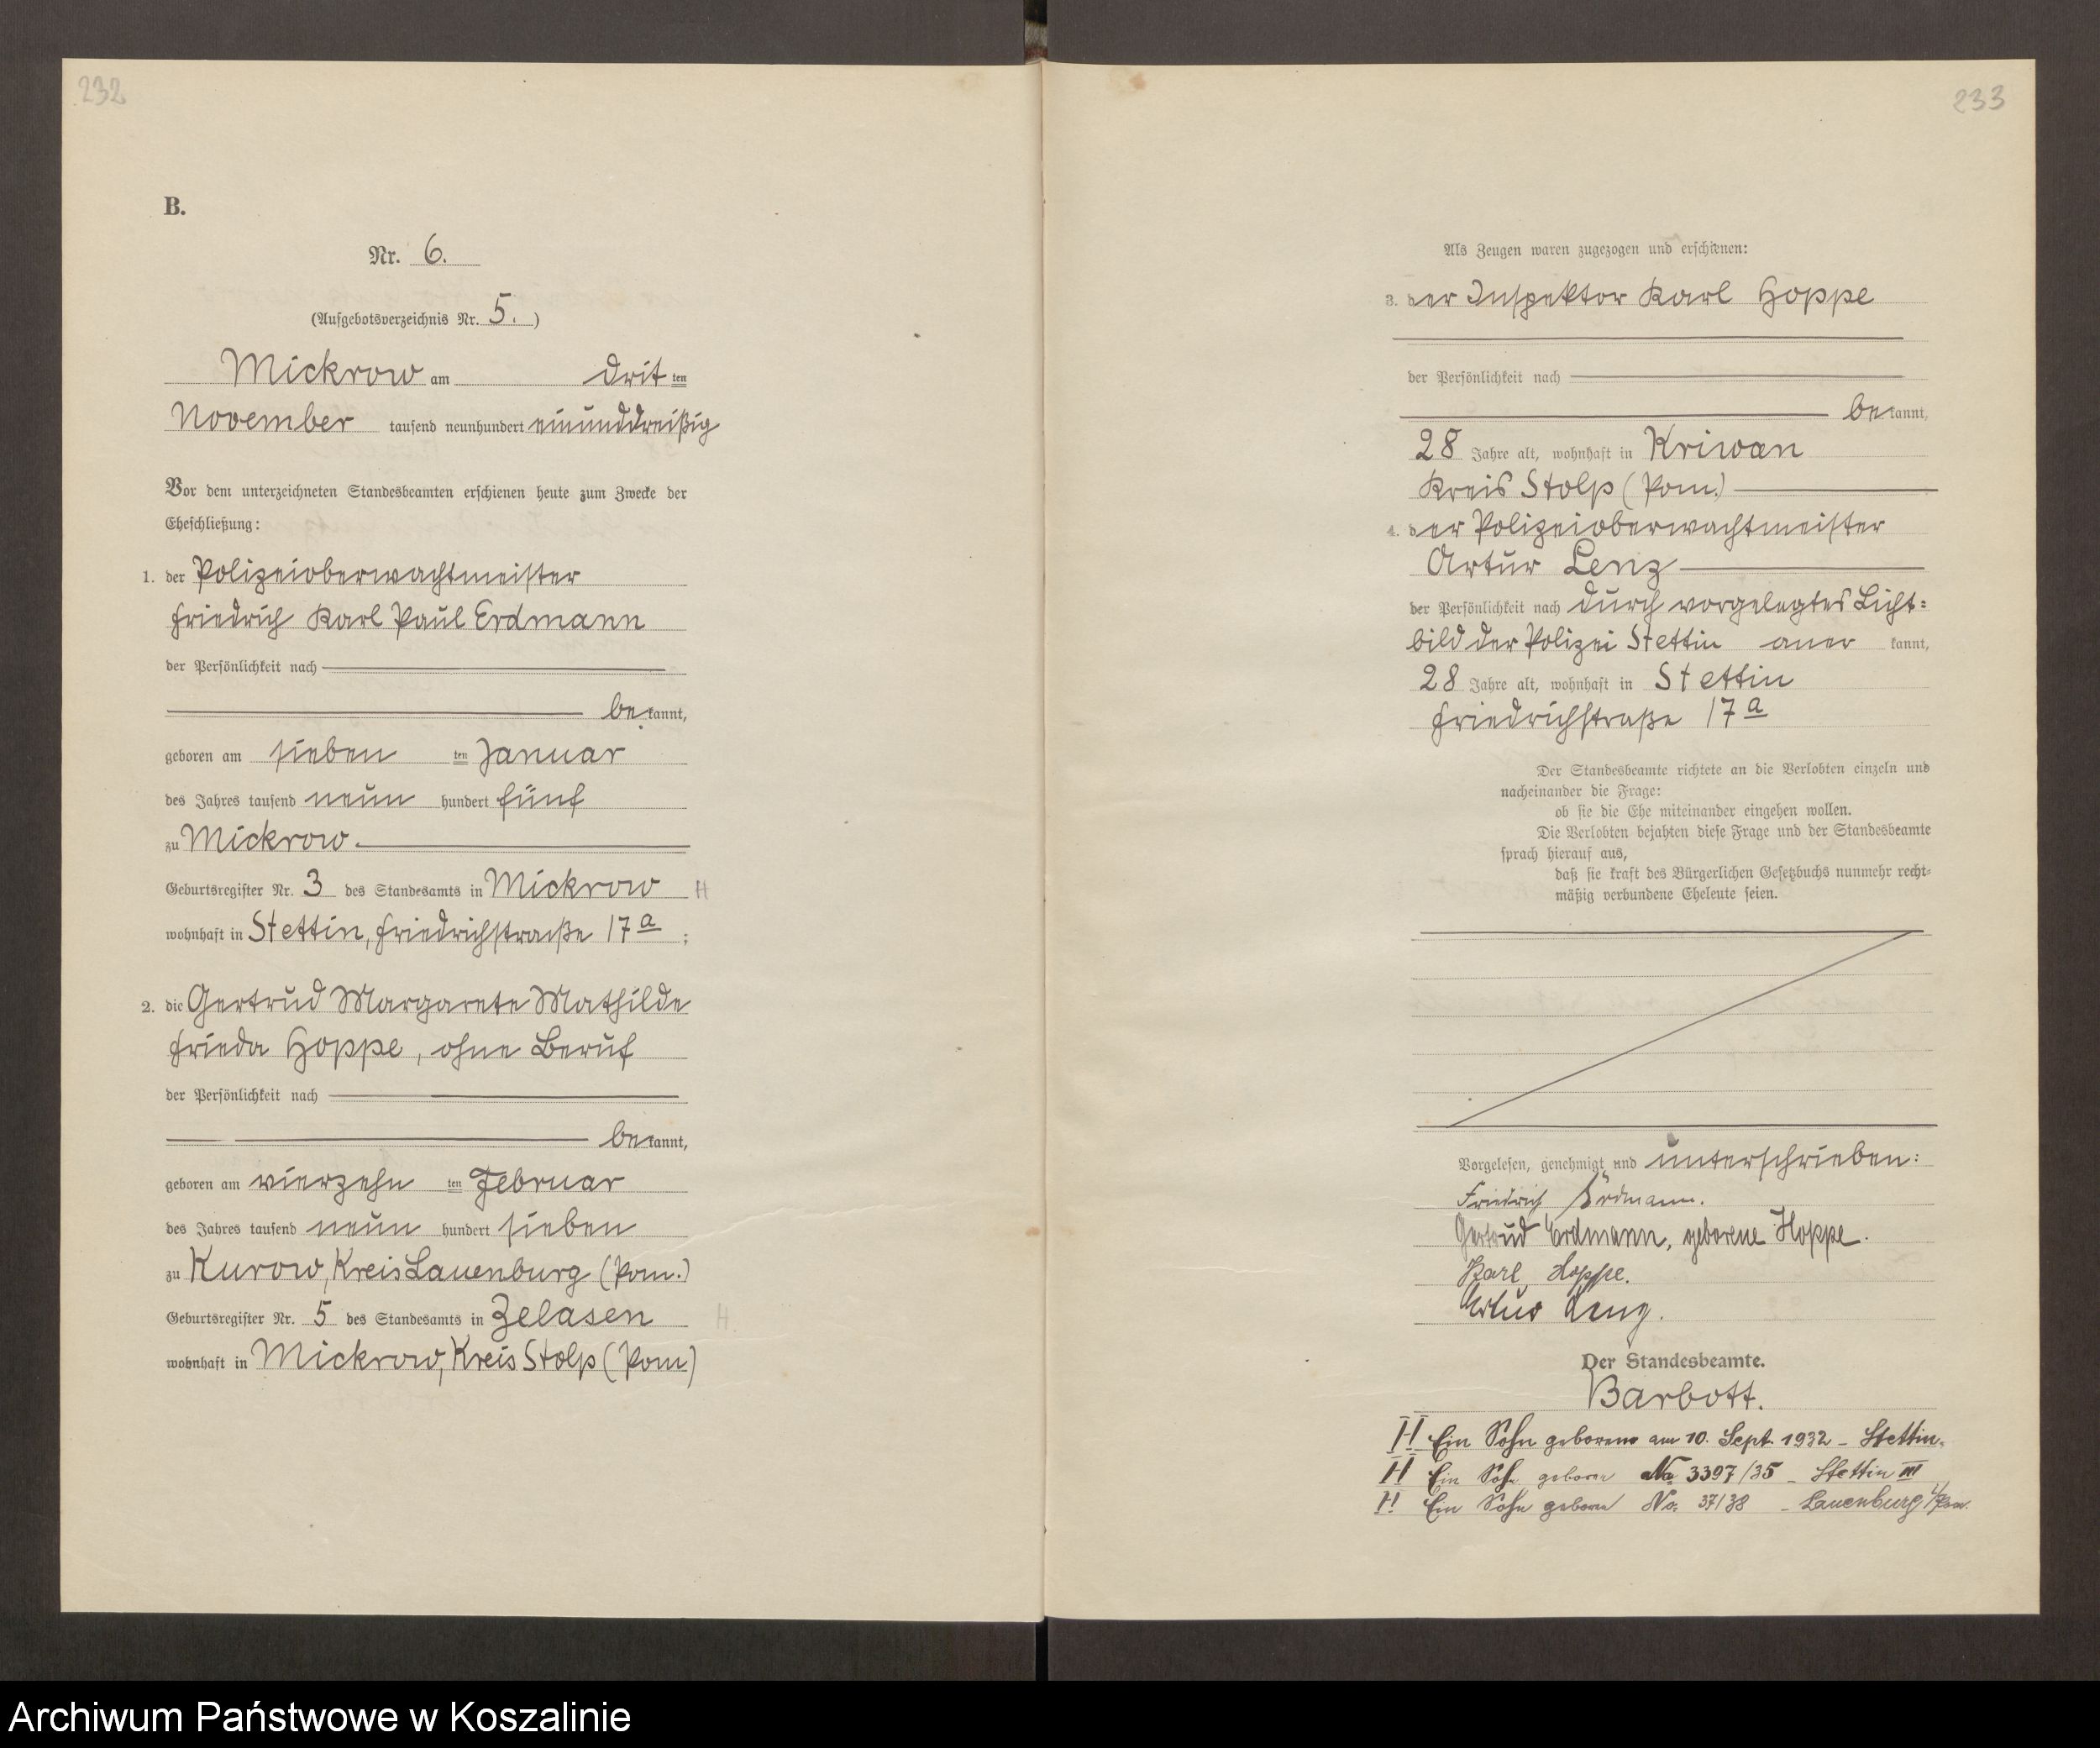 232
B.
Nr. 6.
(Aufgebotsverzeichnis Nr. 5.)
Mickrow am dritten
November tausend neunhundert einunddreißig
Vor dem unterzeichneten Standesbeamten erschienen heute zum Zwecke der
Eheschließung:
1. der Polizeioberwachtmeister
Friedrich Karl Paul Erdmann
der Persönlichkeit nach
bekannt,
geboren am siebenten Januar
des Jahres tausend neun hundert fünf
zu Mickrow
Geburtsregister Nr. 3 des Standesamts in Mickrow H
wohnhaft in Stettin, Friedrichstraße 17a;
2. die Gertrud Margarete Mathilde
Frieda Hoppe, ohne Beruf
der Persönlichkeit nach
bekannt,
geboren am vierzehnten Februar
des Jahres tausend neun hundert sieben
zu Kurow, Kreis Lauenburg (Pom.)
Geburtsregister Nr. 5 des Standesamts in Zelasen H.
wohnhaft in Mickrow, Kreis Stolp (Pom)
233
Als Zeugen waren zugezogen und erschienen:
3. der Inspektor Karl Hoppe
der Persönlichkeit nach
bekannt,
28 Jahre alt, wohnhaft in Kriwan
Kreis Stolp (Pom.)
4. der Polizeioberwachtmeister
Artur Lenz
der Persönlichkeit nach durch vorgelegtes Licht=
bild der Polizei Stettin anerkannt,
28 Jahre alt, wohnhaft in Stettin
Friedrichstraße 17a
Der Standesbeamte richtete an die Verlobten einzeln und
nacheinander die Frage:
ob sie die Ehe miteinander eingehen wollen.
Die Verlobten bejahten diese Frage und der Standesbeamte
sprach hierauf aus,
daß sie kraft des Bürgerlichen Gesetzbuchs nunmehr recht-
mäßig verbundene Eheleute seien.
Vorgelesen, genehmigt und unterschrieben:
Friedrich Erdmann.
Gertrud Erdmann, geborene Hoppe.
Karl Hoppe.
Artur Lenz.
Der Standesbeamte.
Barbott.
H Ein Sohn geboren am 10. Sept. 1932 - Stettin.
H Ein Sohn geboren No 3397/35 - Stettin III
H Ein Sohn geboren No. 37/38 - Lauenburg i/Pom.
Archiwum Państwowe w Koszalinie